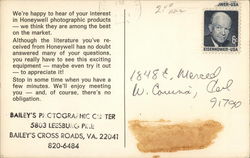 We're happy to hear of your interest
in Honeywell photographic products
— we think they are among the best
on the market.
Although the literature you've re-
ceived from Honeywell has no doubt
answered many of your questions,
you really have to see this exciting
equipment — maybe even try it out
— to appreciate it!
Stop in some time when you have a
few minutes. We'll enjoy meeting
you — and, of course, there's no
obligation.
BAILEY'S PHOTOGRAPHIC CENTER
5803 LEESBURG PIKE
BAILEY'S CROSS ROADS, VA. 22041
820-6484
EISENHOWER·USA
EISENHOWER·USA
1848 E. Merced
W. Covina, Cal
91790